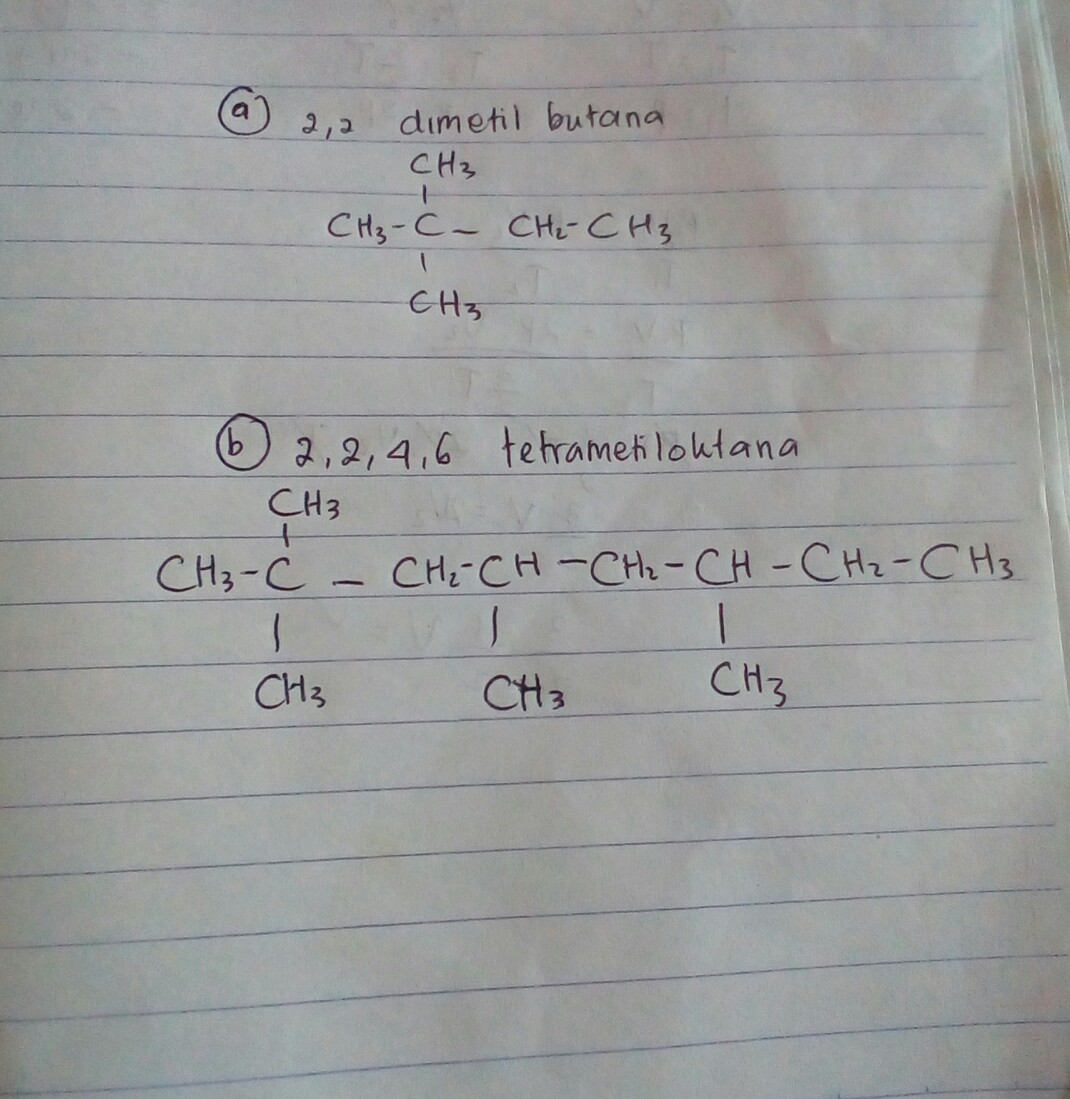 a 2,2 dimetil butana
CH3
|
CH3-C- CH2-CH3
|
CH3
b 2,2,4,6 tetrametiloktana
CH3
|
CH3-C - CH2-CH-CH2-CH-CH2-CH3
| | |
CH3 CH3 CH3